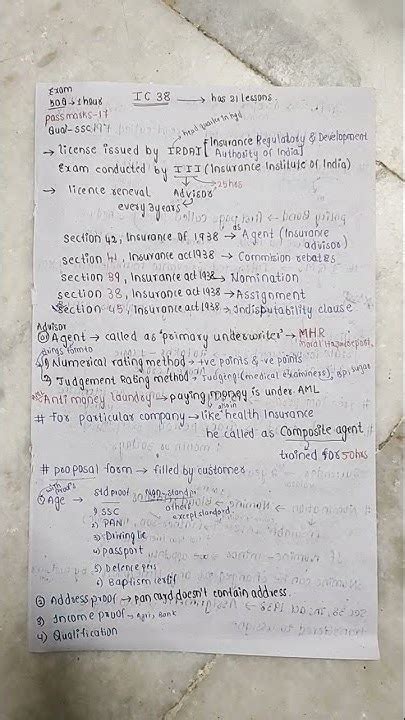 Exam
50Q → 1 hour
IC 38 → has 21 lessons.
pass masks - 17
Qual - SSC
head quarter in hyd
→ license issued by IRDAI [Insurance Regulatory & Development
Authority of India]
Exam conducted by III (Insurance Institute of India)
→ 25hrs
→ licence reneval Advisor
every 3 years
section 42, Insurance of 1938 → Agent (Insurance
advisor)
section 41, Insurance act 1938 → Commision rebates
section 39, Insurance act 1938 → Nomination
section 38, Insurance act 1938 → Assignment
section 45, Insurance act 1938 → Indisputability clause
Advisor
Agent → called as 'primary underwriter' → MHR
1) Numerical rating method → +ve points & -ve points
2) Judgement Rating method → (medical examiners), BP, sugar
Anti money laundry → paying money is under AML
again
# for particular company → like health Insurance
he called as Composite agent
trained for 50hrs
# proposal form → filled by customer
with proofs
① Age → std proof Non-stand pr
others
except standard
1) SSC
2) PAN
3) Driving lic
4) passport
5) Defence pers
6) Baptism certif
② Address proof → pan card doesn't contain address.
3) Income proof → Agri, Bank
4) Qualification